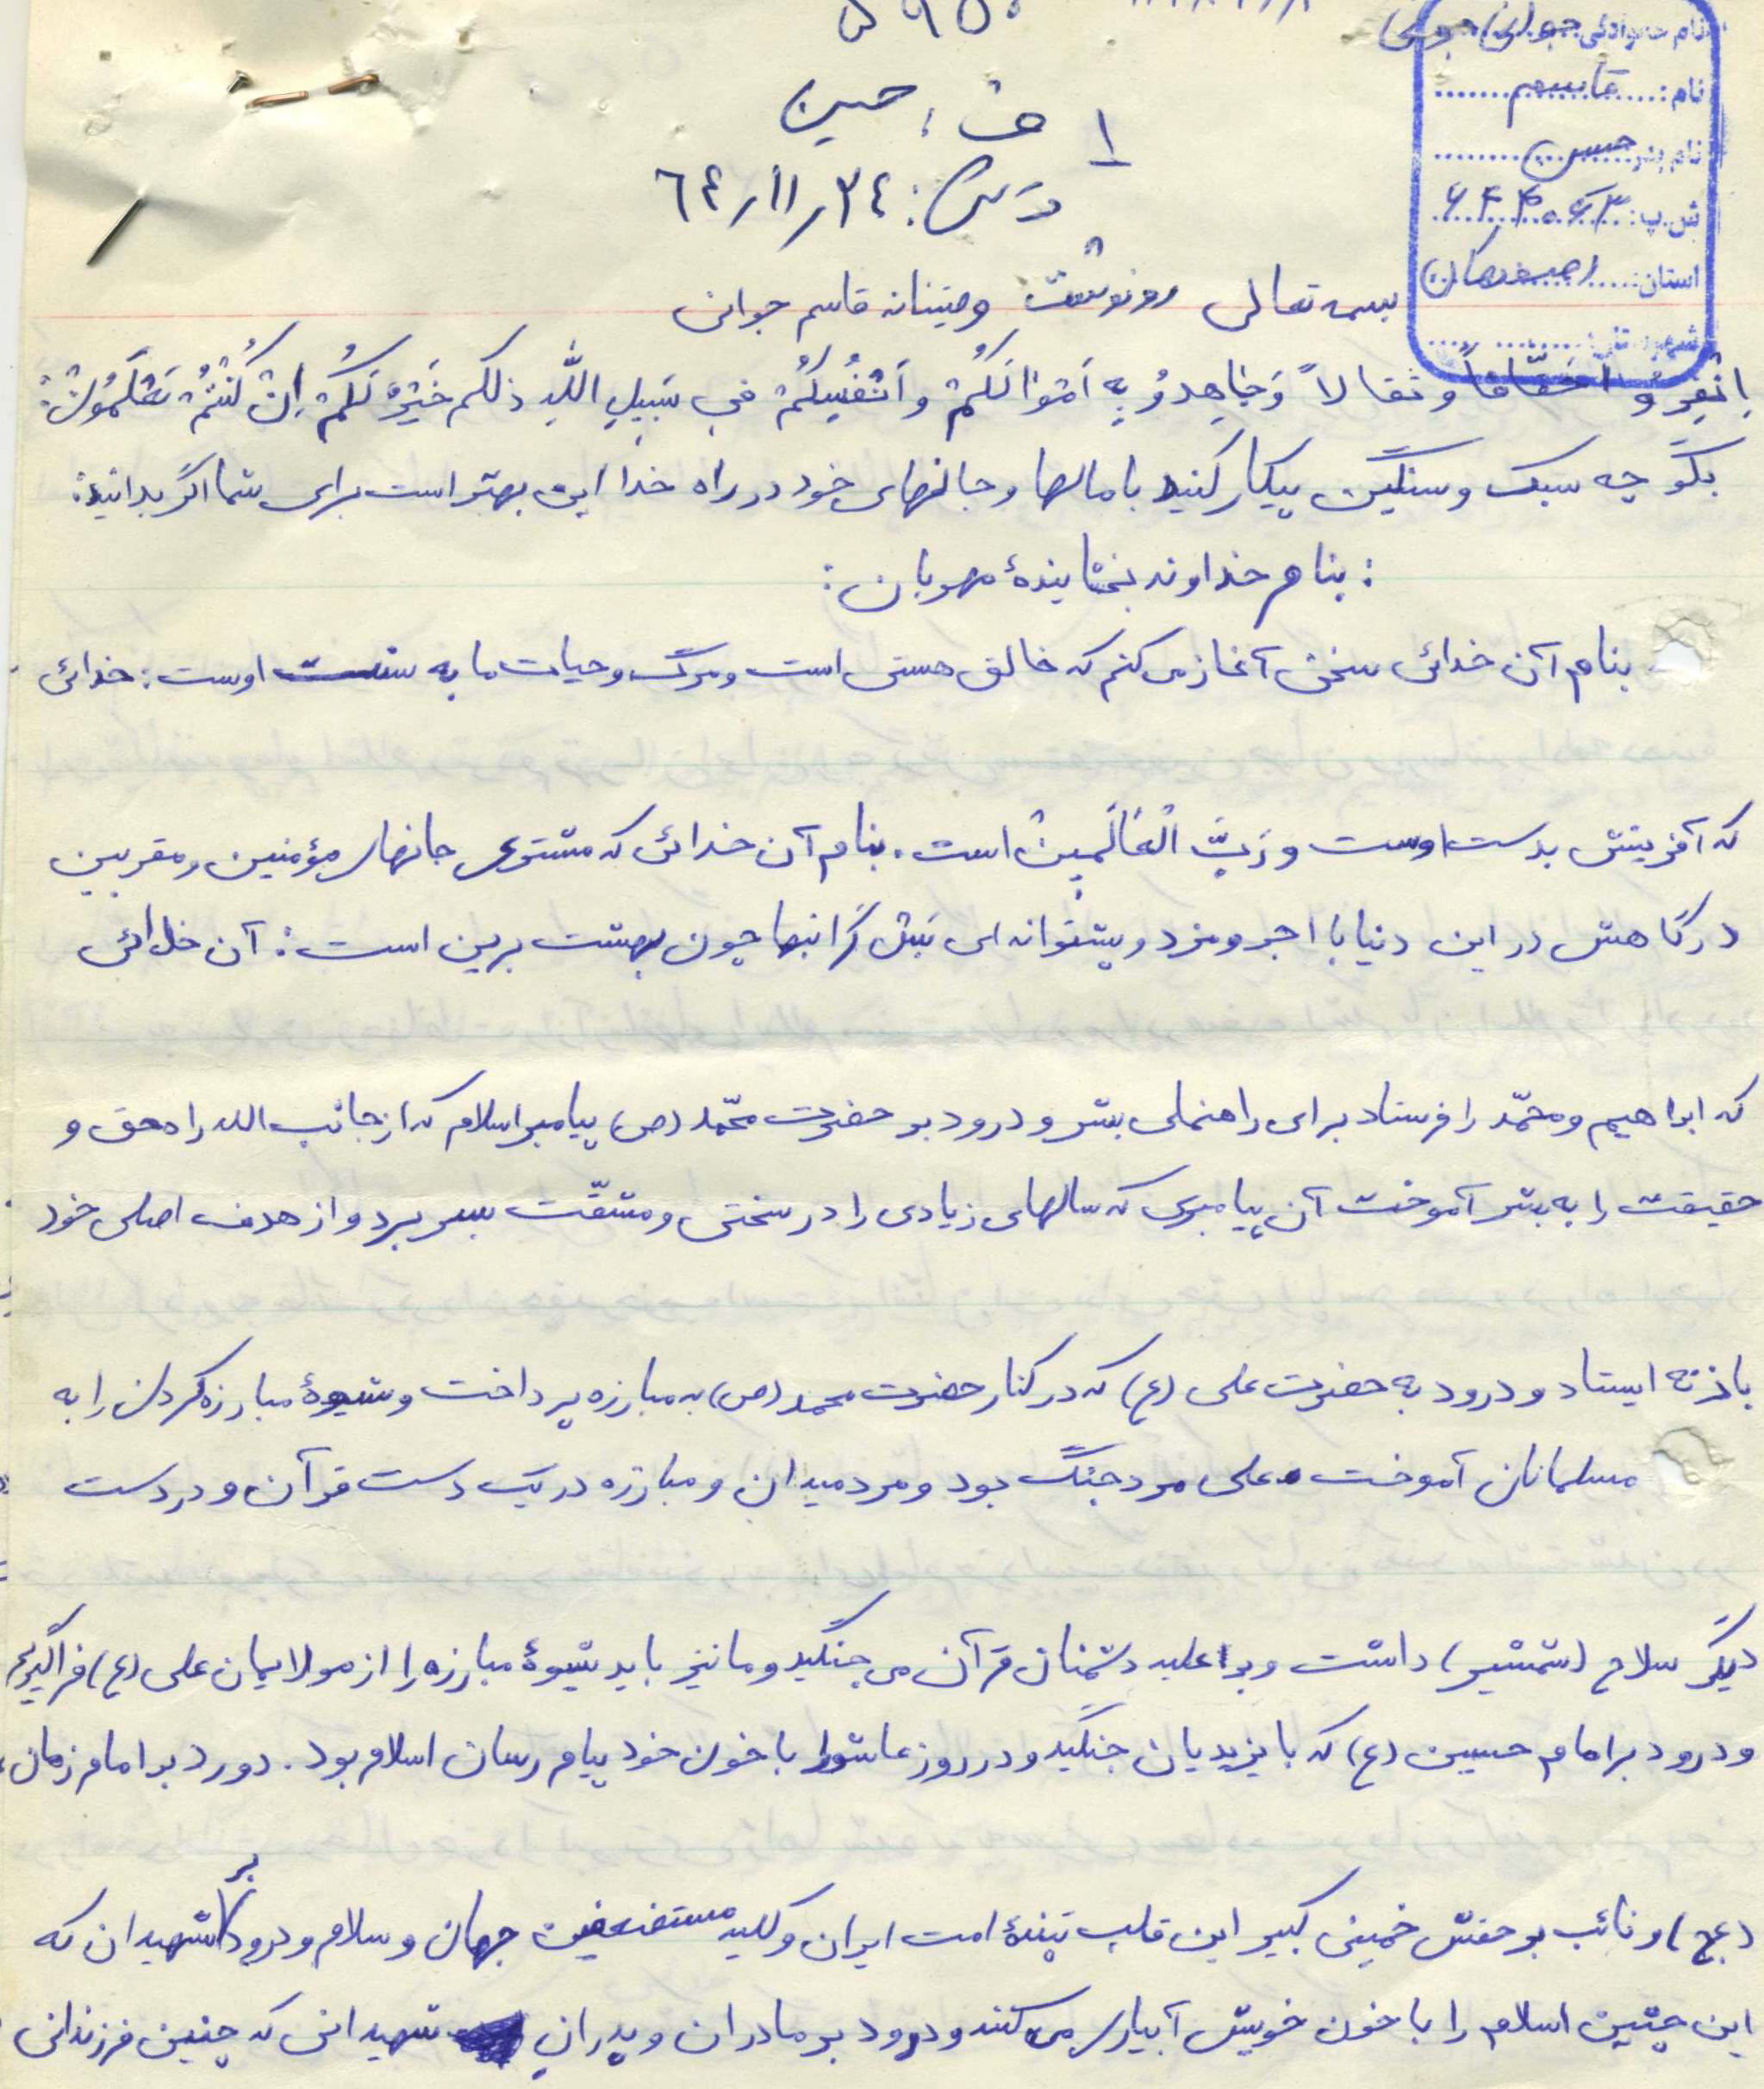 نام خانوادگی: جوانی جونی
نام: قاسم
نام پدر: حسن
ش.پ: ۶۴۴۰۶۳
استان: اصفهان
۵۹۵۰
۱ ف، حسین
۶۴/۱۱/۲۴
بسمه تعالی رونوشت وصیتنامه قاسم جوانی
اِنْفِرُو اخَفّافاً و ثقالاً وَجٰاهِدوُ بِه اَمْوٰالَكُمْ وَاَنْفُسِكُمْ في سَبيلِ اللّهِ ذلكم خَيْرٌ لَكُمْ اِنْ كُنْتُمْ تَعْلَمُونْ:
بگو چه سبک و سنگین پیکار کنید با مالها و جانهای خود در راه خدا این بهتر است برای شما اگر بدانید:
: بنام خداوند بخشایندهٔ مهربان :
بنام آن خدائی سخن آغاز می کنم که خالق هستی است و مرگ و حیات ما به دست اوست: خدائی
که آفرینش بدست اوست و رَبِّ الْعٰالَمینْ است. بنام آن خدائی که مشتری جانهای مؤمنین و مقربین
درگاهش در این دنیا با اجر و مزد و پشتوانه ای بَسْ گرانبها چون بهشت برین است: آن خدائی
که ابراهیم و محمّد را فرستاد برای راهنمای بشر و درود بر حضرت محمّد (ص) پیامبر اسلام که از جانب الله راه حق و
حقیقت را به بشر آموخت آن پیامبری که سالهای زیادی را در سختی و مشقّت بسر برد و از هدف اصلی خود
باز نه ایستاد و درود به حضرت علی (ع) که در کنار حضرت محمد (ص) به مبارزه پرداخت و شیوهٔ مبارزه کردن را به
مسلمانان آموخت علی مرد جنگ بود و مرد میدان و مبارزه در یک دست قرآن و در دست
دیگر سلاح (شمشیر) داشت و بر علیه دشمنان قرآن می جنگید و ما نیز باید شیوهٔ مبارزه را از مولایمان علی (ع) فراگیریم
و درود بر امام حسین (ع) که با یزیدیان جنگید و در روز عاشورا با خون خود پیام رسان اسلام بود. دورد بر امام زمان
(عج) و نائب بر حقش خمینی کبیر این قلب تپندهٔ امت ایران و کلیه مستضعفین جهان و سلام و درود بر شهیدان که
این چنین اسلام را با خون خویش آبیاری می کنند و درود بر مادران و پدران شهیدانی که چنین فرزندانی